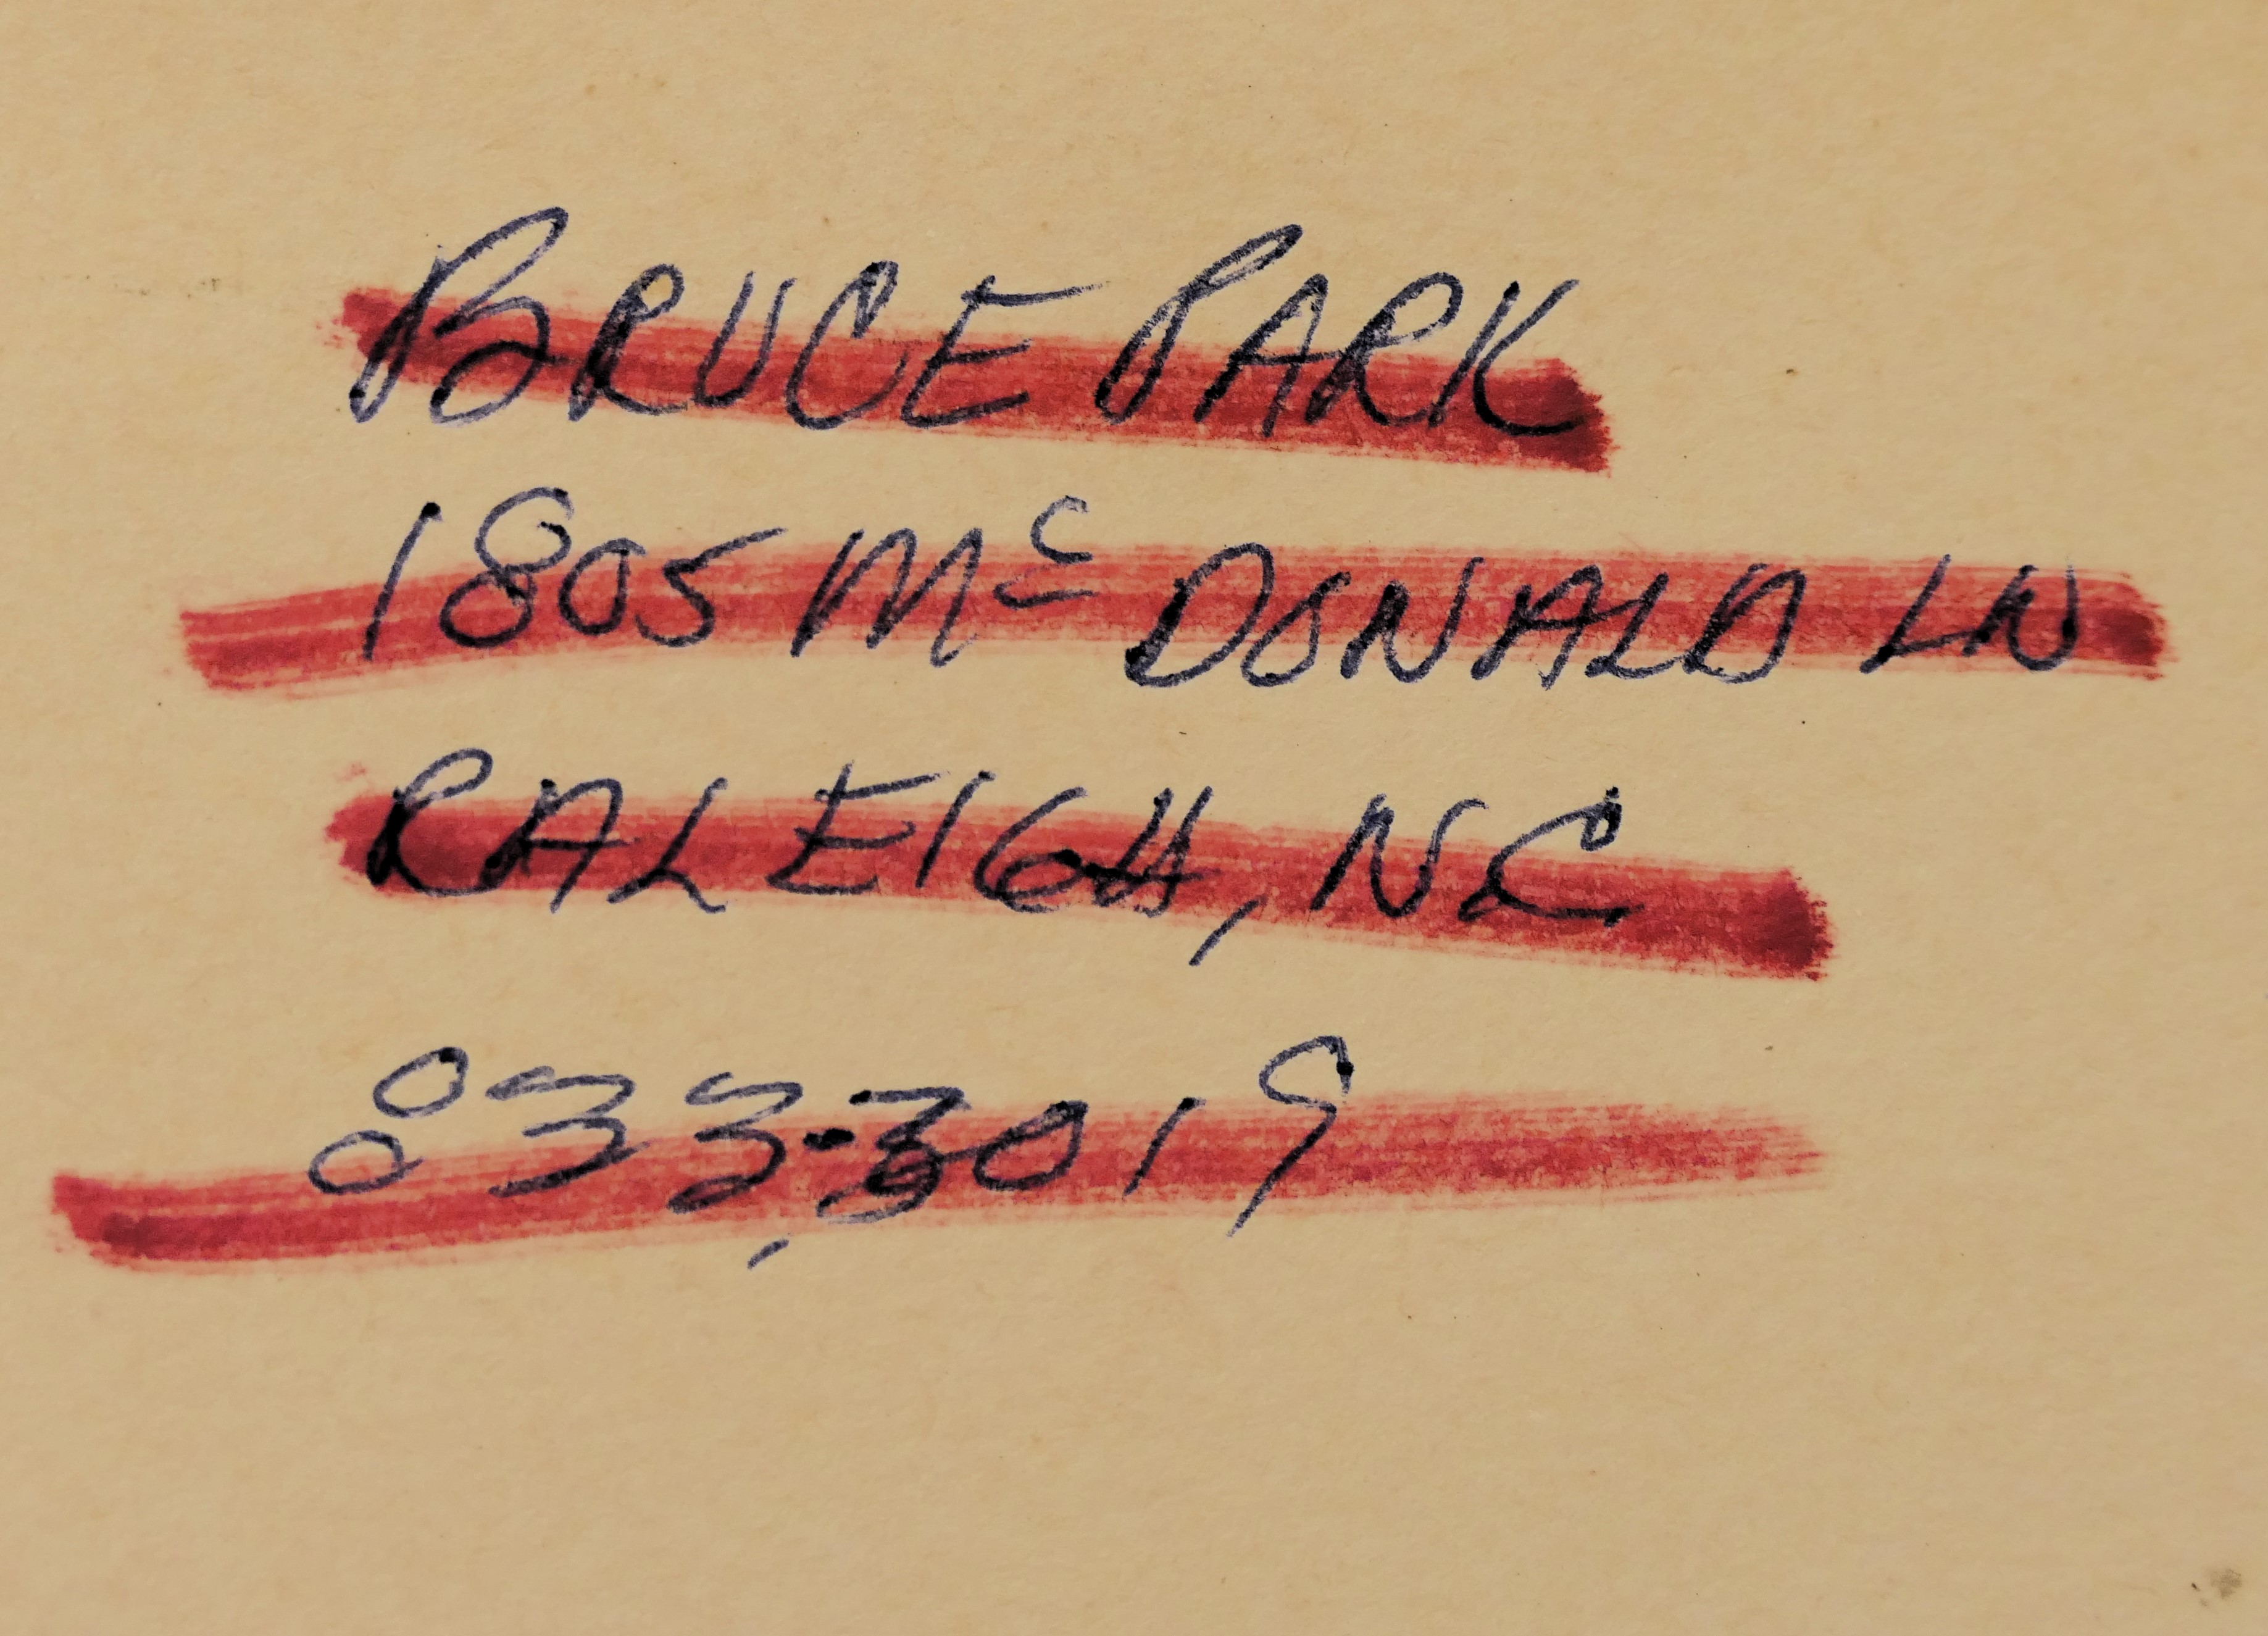 BRUCE PARK
1805 Mc DONALD LN
RALEIGH, NC
833-3019